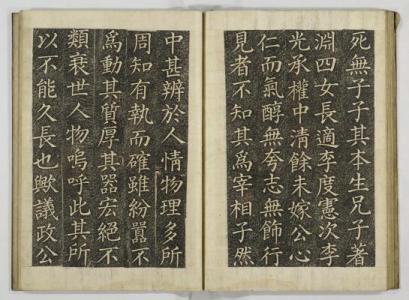 死無子子其本生兄子著
淵四女長適李度憲次李
光承權中清餘未嫁公心
仁而氣醇無夸志無飾行
見者不知其為宰相子然
中甚辨於人情物理多所
周知有執而確雖紛囂不
為動其質厚其器宏絕不
類衰世人物嗚呼此其所
以不能久長也歟議政公